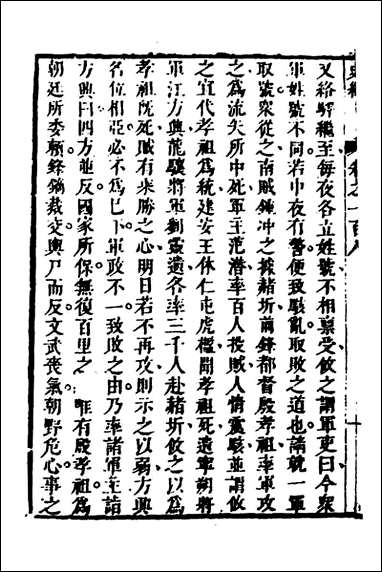 又絡驛繼至每夜各立姓號不相稟受攸之謂軍吏曰今衆
軍姓號不同若中夜有警便致駭亂取敗之道也請就一軍
取號衆從之南賊鍾冲之據赭圻前鋒都督殷孝祖率軍攻
之爲流矢所中死軍主范潜率百人投賊人情震駭並謂攸
之宜代孝祖爲統建安王休仁屯虎檻聞孝祖死遣寧朔將
軍江方興龍驤將軍劉靈遺各率三千人赴赭圻攸之以爲
孝祖旣死賊有乘勝之心明日若不再攻則示之以弱方興
名位相亞必不爲巳下軍政不一致敗之由乃率諸軍主詣
方興曰四方並反國家所保無復百里之 唯有殷孝祖爲
朝廷所委賴鋒鏑裁交輿尸而反文武喪氣朝野危心事之